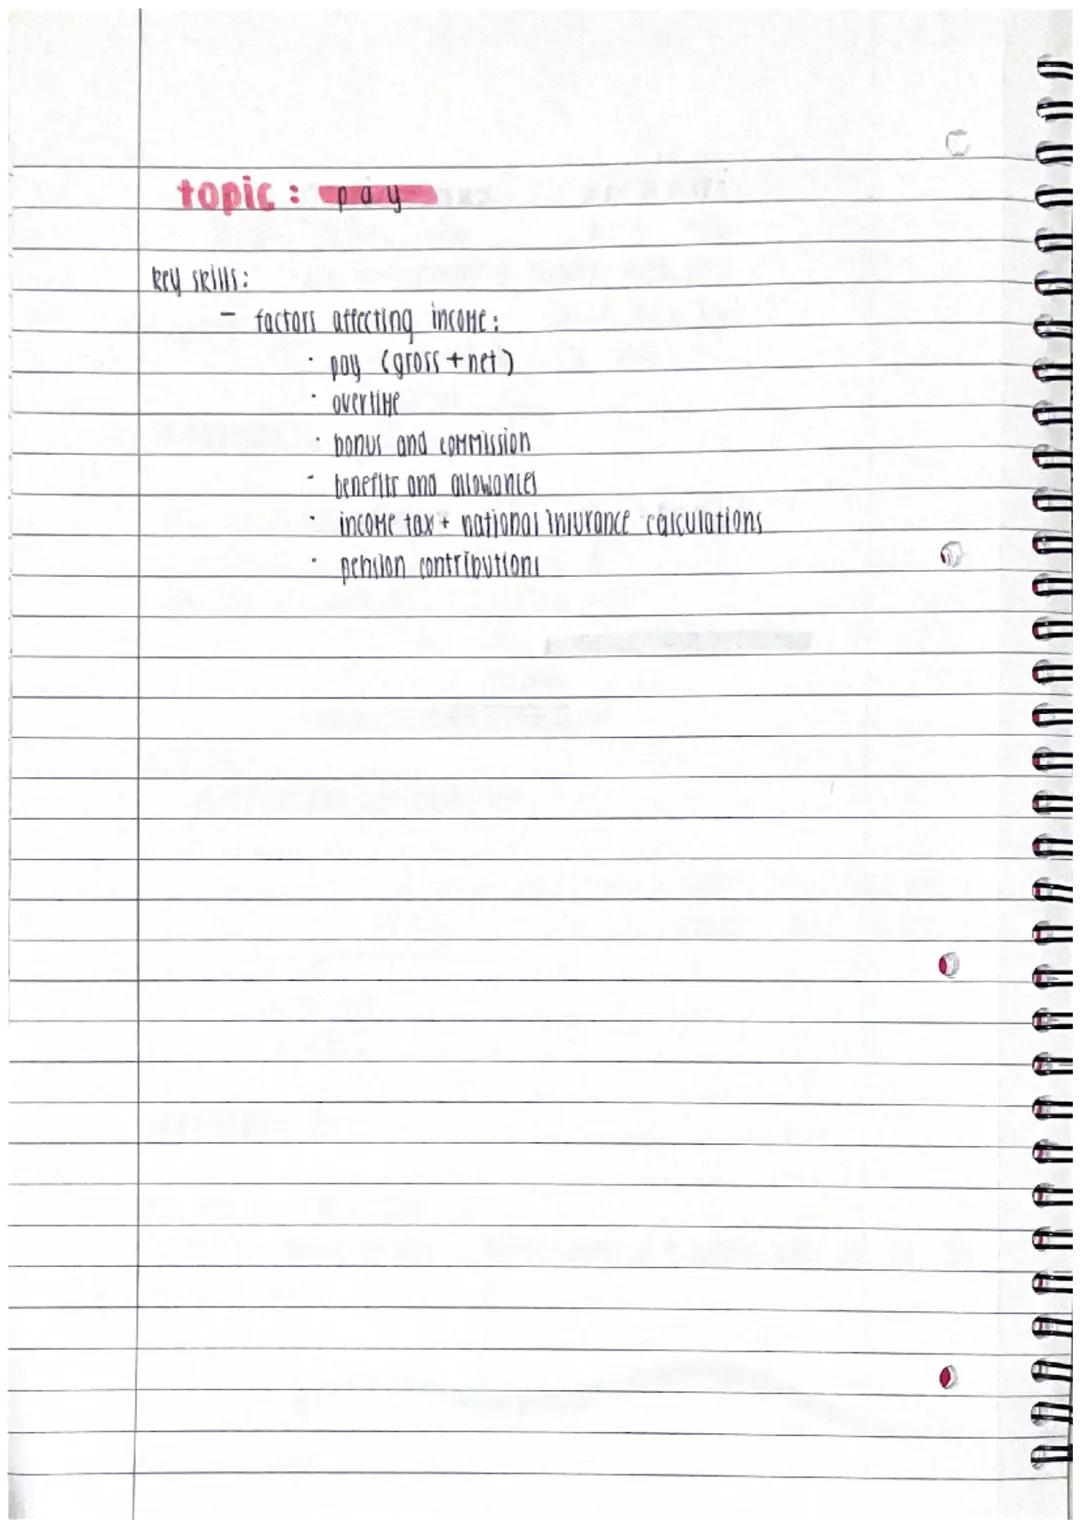 topic : pay
key skills:
- factors affecting income:
· pay (gross + net)
· overtime
· bonus and commission
· benefits and allowances
· income tax + national insurance calculations
· pension contributions